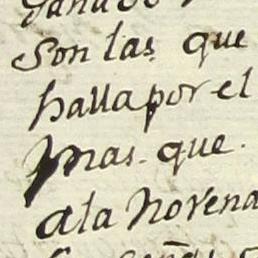 ganado
son las que
halla por el
mas. que.
ala Novena